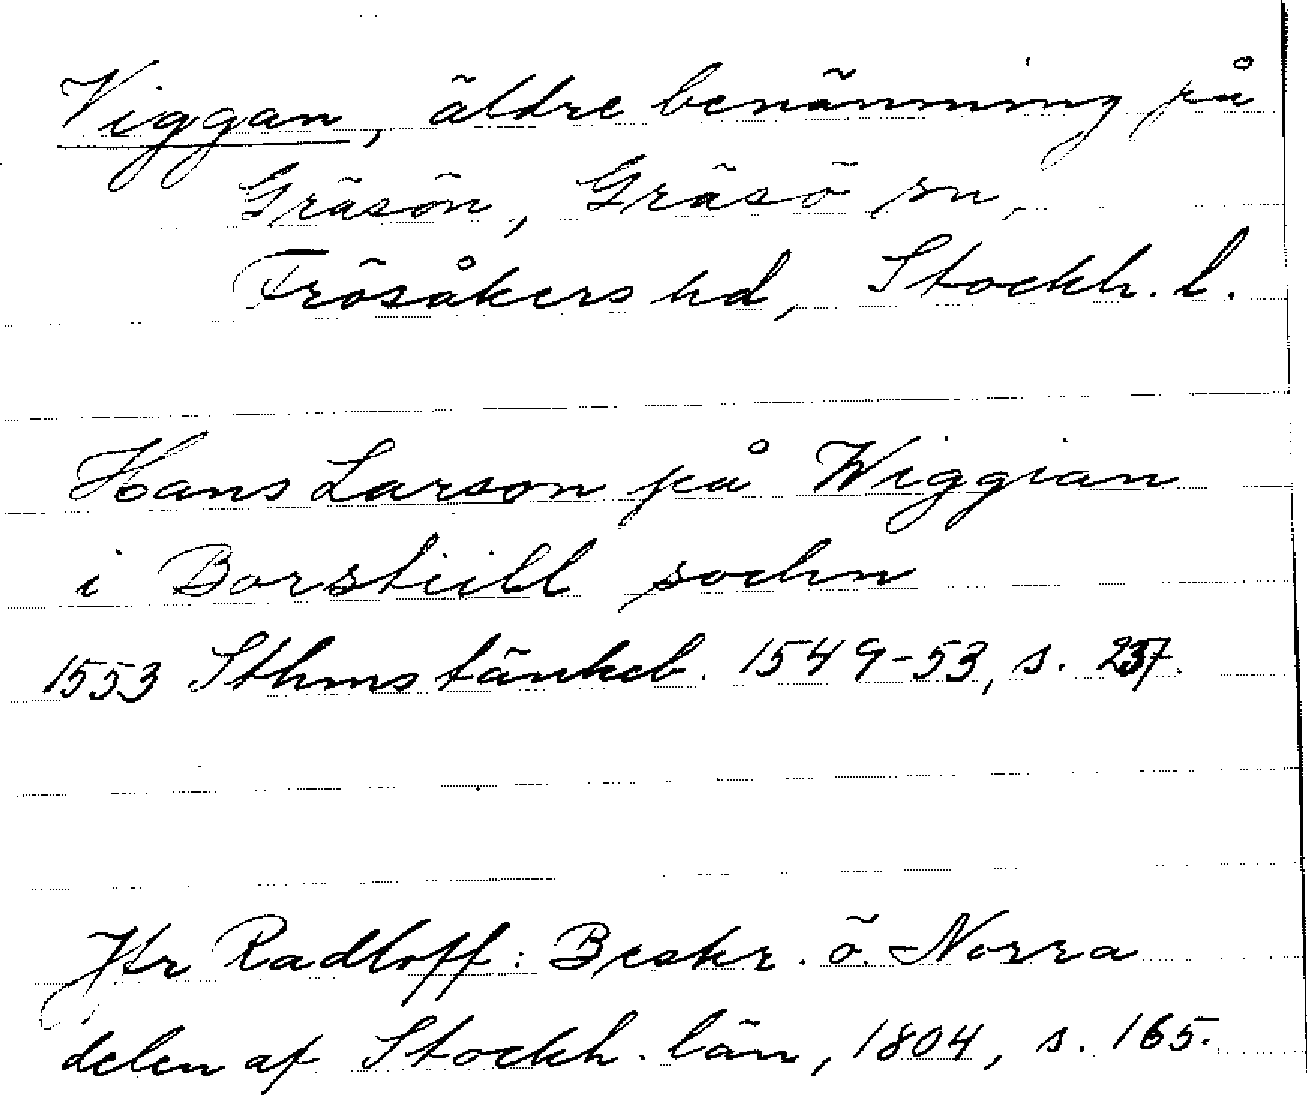 Viggan, äldre benämning på
Gräsön, Gräsö sn,
Frösåkers hd, Stockh. l.
Hans Larson på Wiggian
i Borstiill sochn
1553 Sthms tänkeb. 1549-53, s. 237.
Jfr Radloff: Beskr. ö. Norra
delen af Stockh. län, 1804, s. 165.